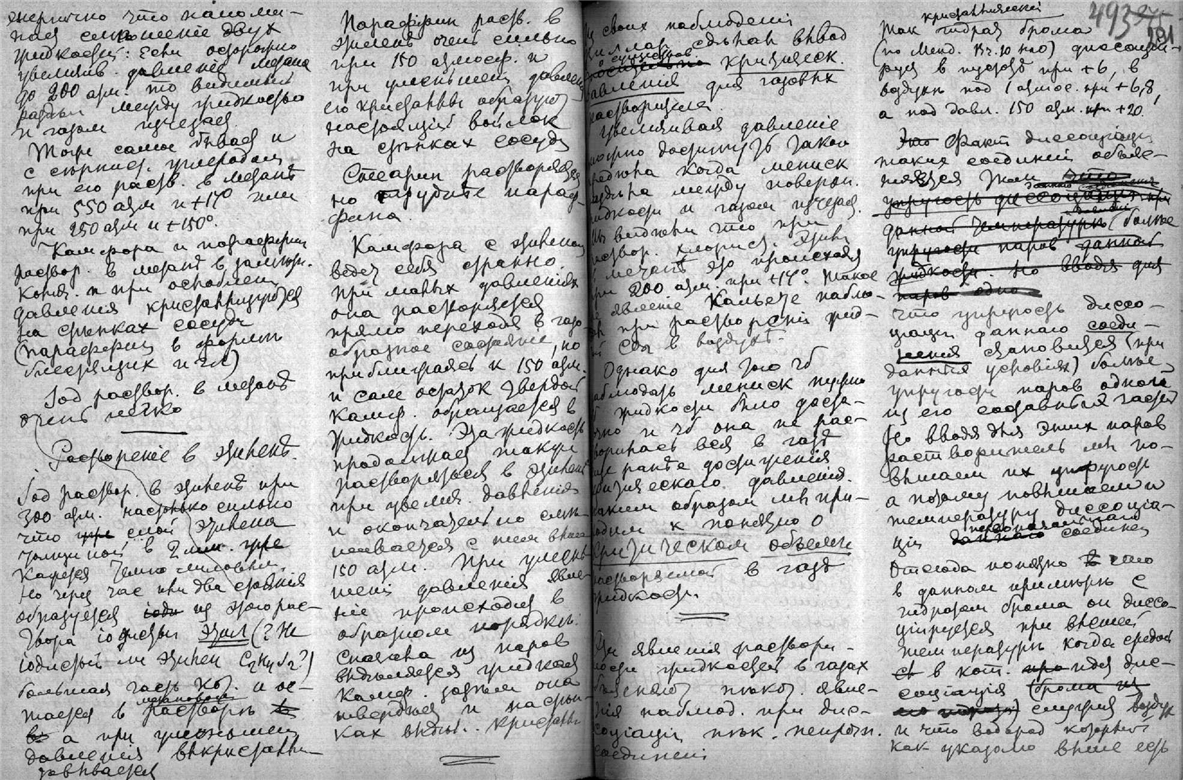 что напоми-
ная смешение двух
жидкостей: Если осторожно
увелич. давленіе метана
до 200 атм. то видимый
раздел между жидкостью
и газом исчезает
Тоже самое бывает и
с сернист. углеродом
при его раств. в метане
при 550 атм и +17° или
при 250 атм и +150°.
Камфора и парафин
раствор. в метане в
колич. и при ослаблен.
давления кристаллизуются
на стенках сосуда
(парафин в форме
блестящих игл)
Іод раствор. в метане
очень легко
Растворение в этилене.
Іод раствор. в этилене при
300 атм. настолько сильно
что слой этилена
толщиной в 2 мм.
кажется темно-лиловым.
Но через час или два стояния
образуется из этого рас-
твора іодистый этил (? не
іодистый ли этилен C2H4J2?)
большая часть кот. и ос-
тается в растворе
а при уменьшен
давления выкристалли-
зовывается
Парафин раств. в
этилене очень сильно
при 150 атмосф. и
при уменьшен давлен
его кристаллы образуют
настоящий войлок
на стенках сосуда
Стеарин растворяется
но труднее параф-
фина
Камфора с этиленом
ведет себя странно
При малых давлениях
она растворяется
прямо переходя в газо-
образное состояние, но
приближаясь к 150 атм.
и сам остаток твердой
камф. обращается в
жидкость. Эта жидкость
продолжает также
растворяться в этилене
при увелич. давления
и окончательно сли-
вается с ним выше
150 атм. При умень-
шении давления явле-
ние происходит в
обратном порядке.
Сначала из паров
выделяется жидкая
камф. затем она
твердеет и на стен-
ках видны кристаллы
из своих наблюдений
Виллар сделал вывод
о существов. критическ.
давления для газовых
растворителей.
Увеличивая давление
можно достигнуть такой
предела когда мениск
раздела между поверхн.
жидкости и газом исчезает.
Мы видели что при
раствор. хлорист. этила
в метане это происходит
при 200 атм. при +17° Такое
же явление Кальете наблю-
дал при растворении жид-
кой CO2 в воздухе.
Однако для того чтоб
наблюдать мениск нужно
чтоб жидкости было доста-
точно и чтоб она не рас-
творилась вся в газе
еще ранее достижения
критического давления.
Таким образом мы при-
ходим к понятію о
критическом объеме
растворяемой в газе
жидкости
Для явления раствори-
мости жидкостей в газах
некот. явле-
ния наблюд. при дис-
социации неок. непрочн.
соединений
493
Так кристаллический гидрат брома
(по Менд. Br2 10 H2O) диссоции-
рует в пустоте при +6, в
воздухе под 1 атмос. при +6,8,
а под давл. 150 атм. при +20.
Факт диссоциации
таких соединений объяс-
няется тем
что упругость диссо-
циации данного соеди-
нения становится (при
данных условиях) больше
упругости паров одного
из его составных частей
Но вводя для этих паров
растворитель мы по-
вышаем их упругость
а потому повышаем и
температуру диссоциа-
ции первоначального соединен
Отсюда понятно что
в данном примере с
гидратом брома он диссо-
циируется при высшей
температуре когда средой
в кот. идет дис-
социация служит воздух
и что водород который
как указано выше есть